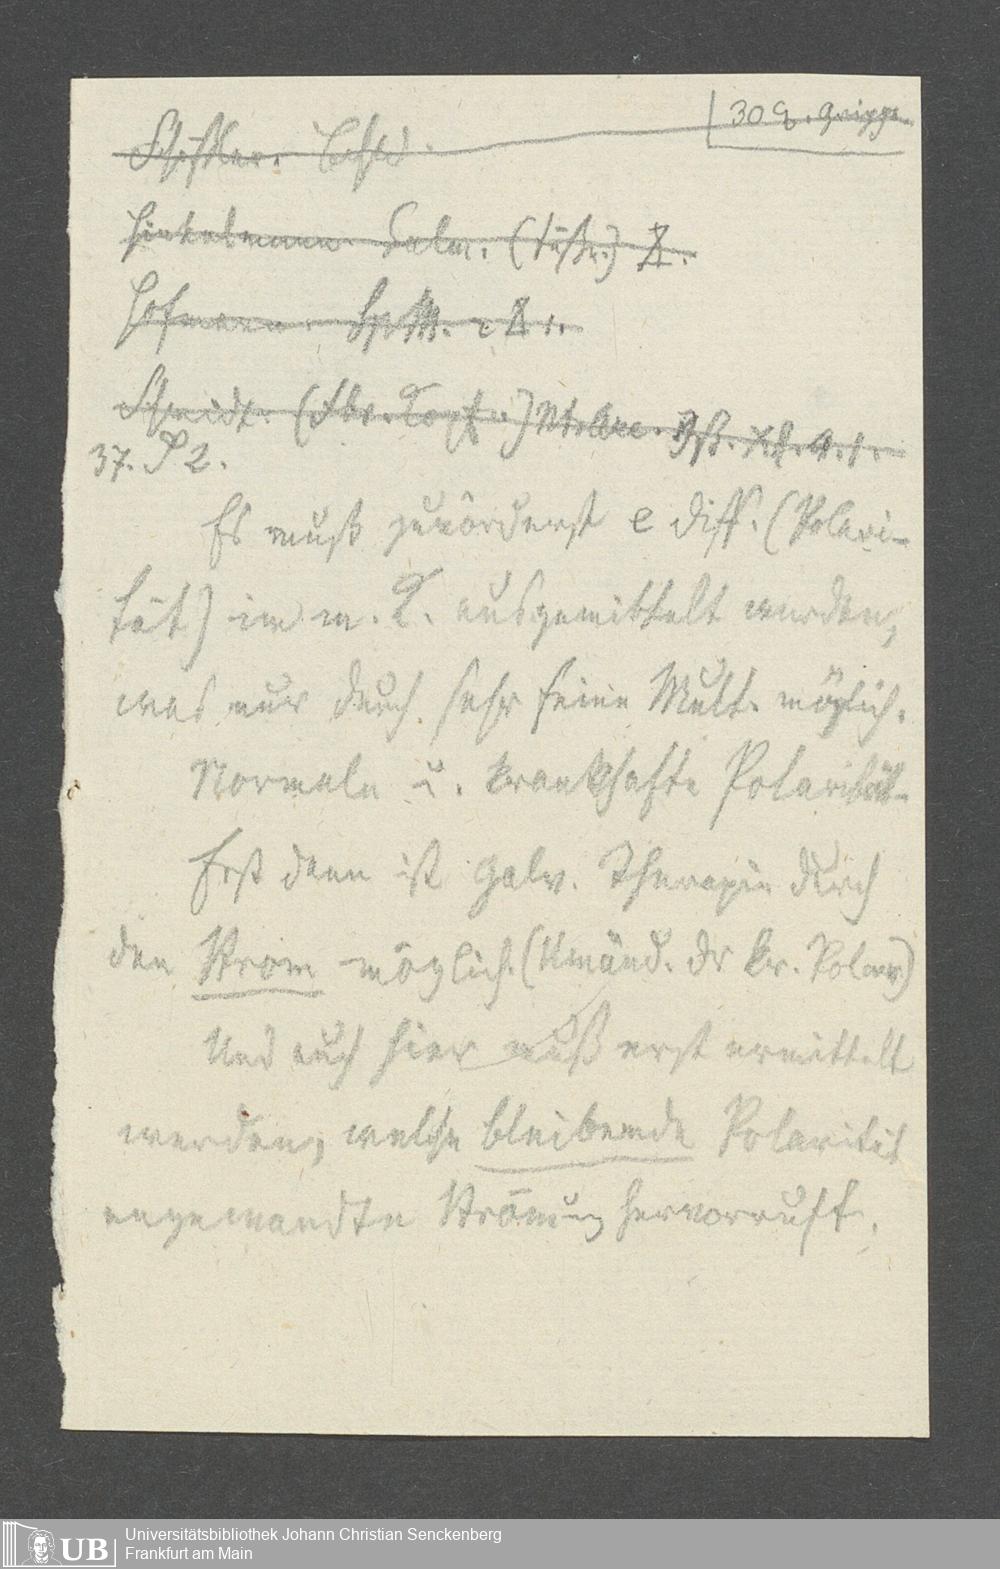 30 q. Grippe.
Schüßler.
Hinkelmann. Calm. (süße.)
Hofmann.
Schmidt. (Fbr. Kopf.)
37. P 2.
Es muß zuvörderst e Diff. (Polari-
tät) im m. K. ausgemittelt werden,
was nur durch sehr feine Mult. möglich.
Normale u. krankhafte Polarität.
Erst dann ist galv. Therapie durch
den Strom möglich. (Umänd. dr kr. Polar)
Und auch hier muß erst ermittelt
werden, welche bleibende Polarität
angewandte Strömung hervorruft.
UB Universitätsbibliothek Johann Christian Senckenberg
Frankfurt am Main